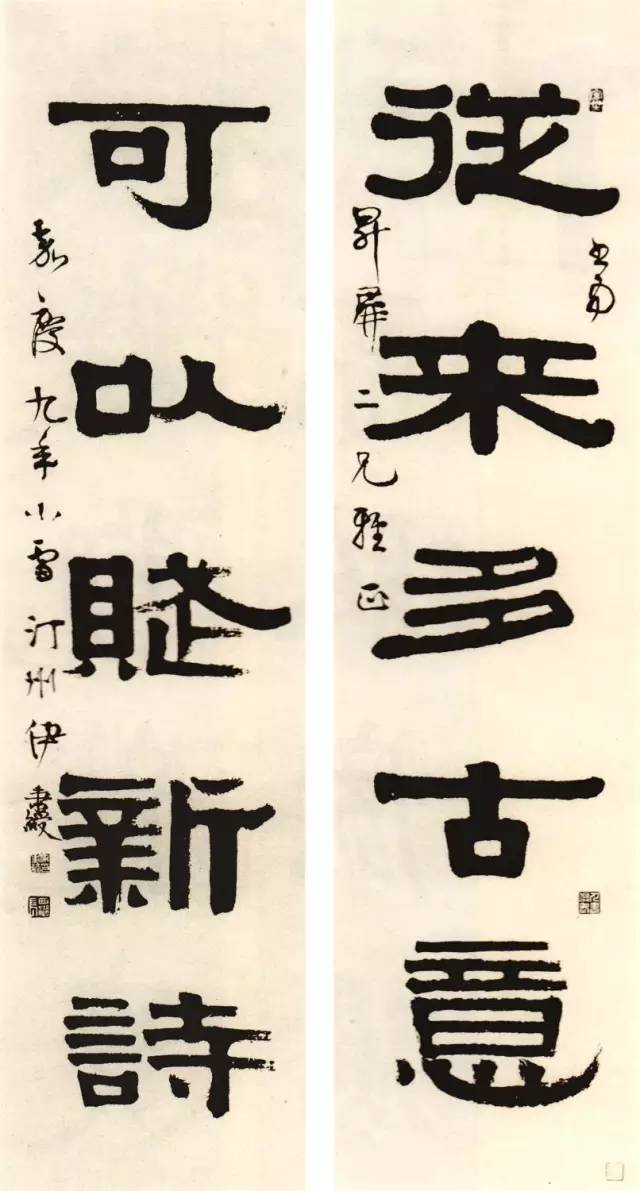 從來多古意
書為
昇屏二兄雅正
可以賦新詩
嘉慶九年小雪汀州伊秉綬